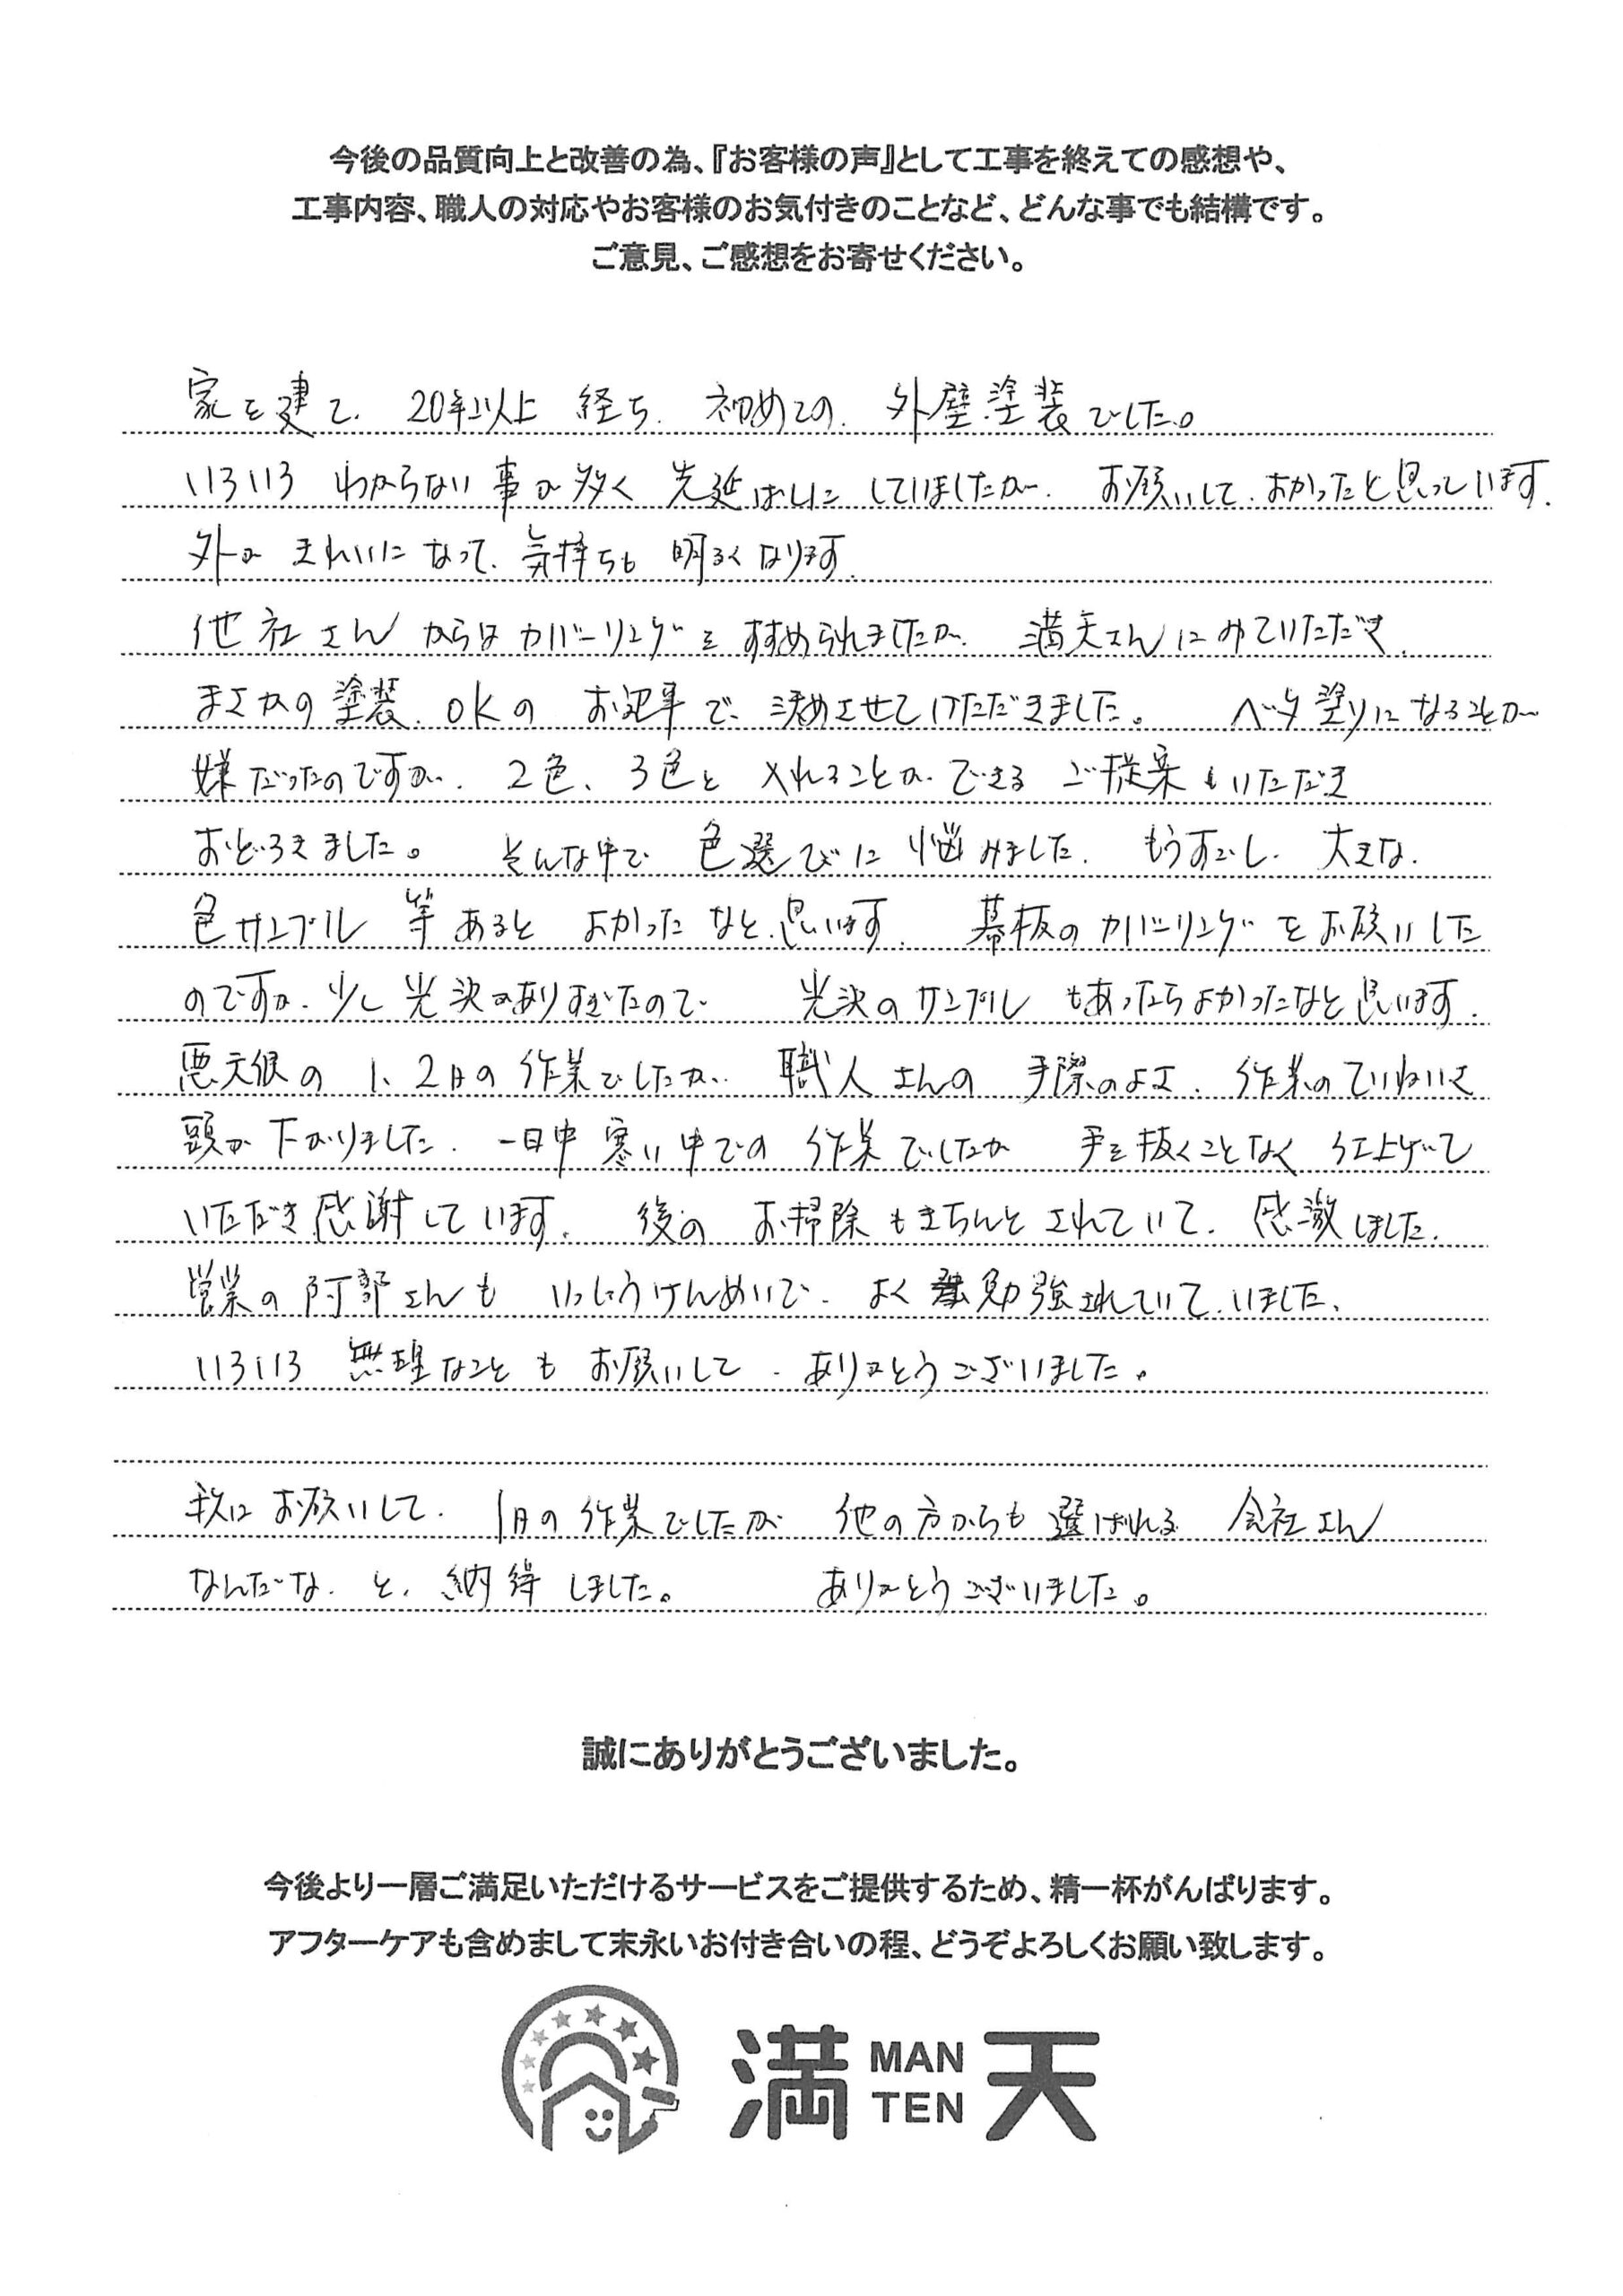 今後の品質向上と改善の為、『お客様の声』として工事を終えての感想や、
工事内容、職人の対応やお客様のお気付きのことなど、どんな事でも結構です。
ご意見、ご感想をお寄せください。
家を建て、20年以上 経ち、初めての、外壁塗装でした。
いろいろ わからない事が多く 先延ばしに していましたが、お願いして、よかったと思っています。
外が きれいになって、気持ちも 明るくなります。
他社さん からは カバーリングを すすめられましたが、満天さんに みていただき、
まさかの塗装、OKの お返事で、決めさせていただきました。 ベタ塗りになることが
嫌だったのですが、2色、3色と 入れることができる ご提案もいただき
おどろきました。 そんな中で 色選びに悩みました。 もうすこし、大きな、
色サンプル 等あると よかったなと、思います。 幕板のカバーリングをお願いした
のですが、少し光沢がありすぎたので 光沢のサンプル もあったらよかったなと思います。
悪天候の 1、2月の作業でしたが、職人さんの 手際のよさ、作業のていねいさ
頭が下がりました。一日中 寒い中での 作業でしたが 手を抜くことなく 仕上げて
いただき感謝しています。 後の お掃除もきちんとされていて、感激しました。
営業の阿部さんも いっしょうけんめいで、よく 勉強されていて、いました、
いろいろ 無理なことも お願いして、ありがとうございました。
秋に お願いして、1月の作業でしたが 他の方からも 選ばれる 会社さん
なんだな、と、納得しました。 ありがとうございました。
誠にありがとうございました。
今後より一層ご満足いただけるサービスをご提供するため、精一杯がんばります。
アフターケアも含めまして末永いお付き合いの程、どうぞよろしくお願い致します。
満 MAN TEN 天